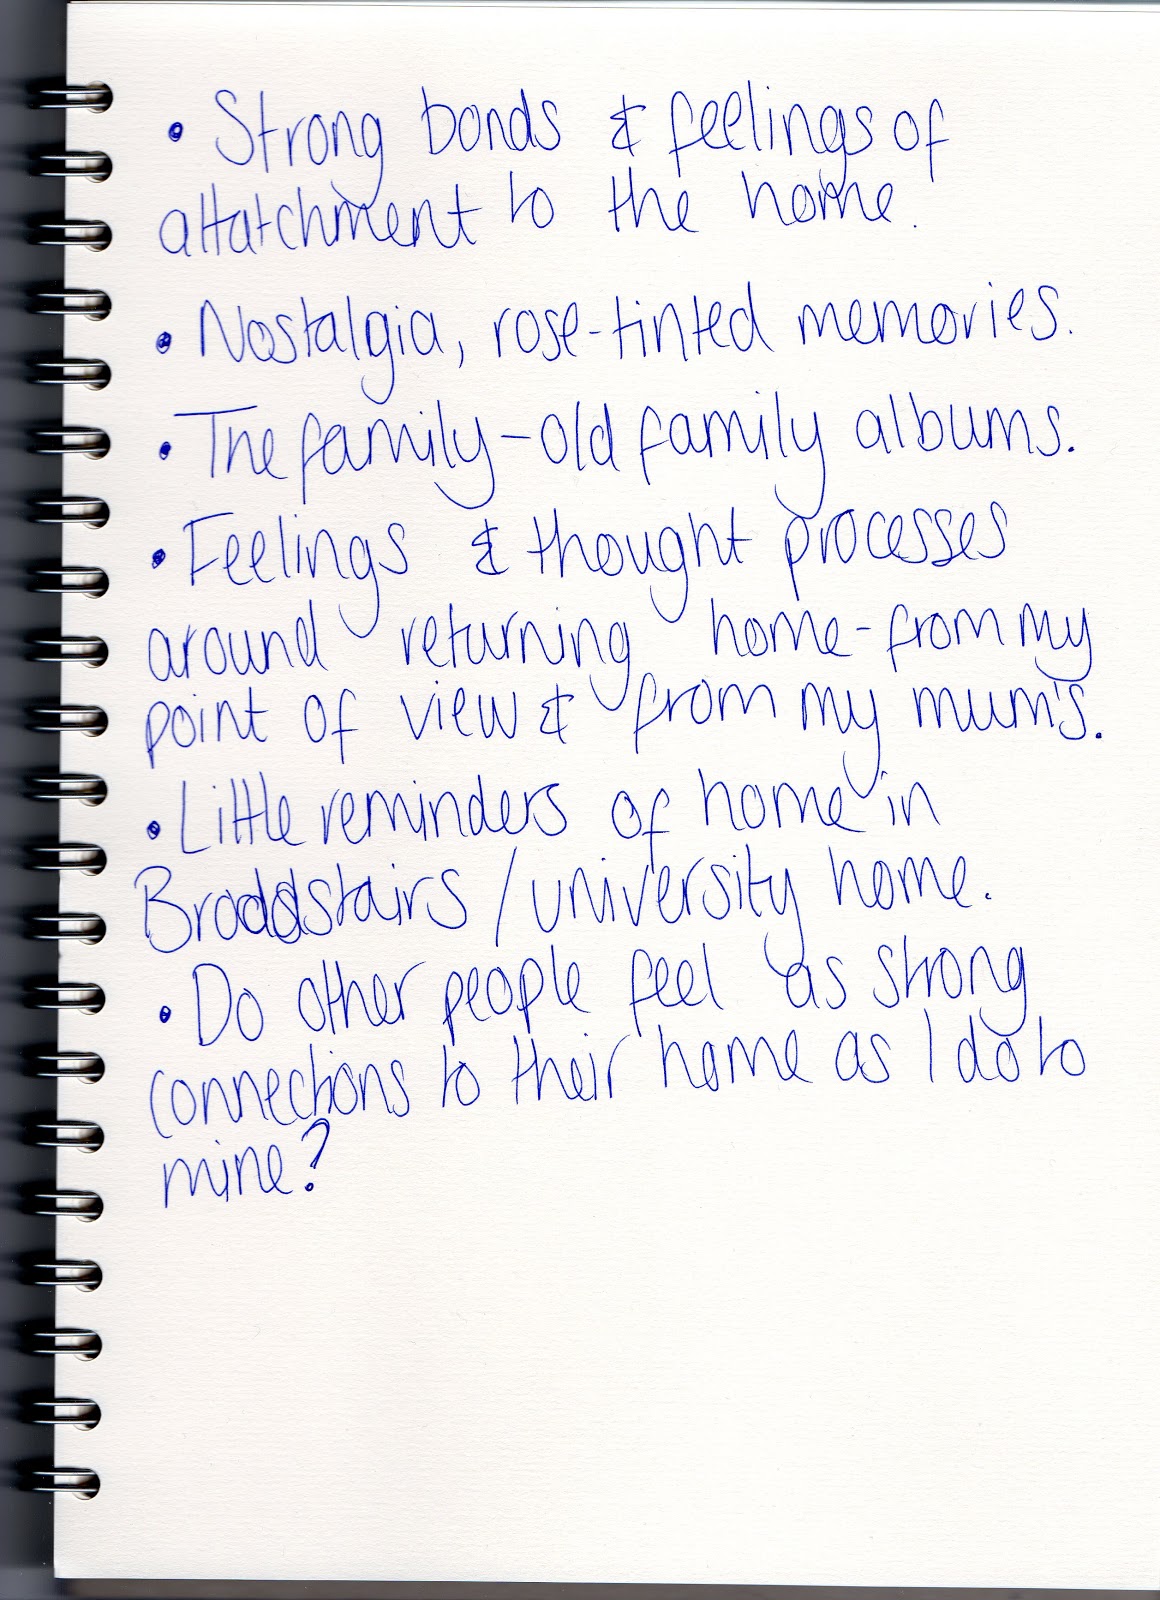 • Strong bonds & feelings of
attatchment to the home.
• Nostalgia, rose-tinted memories.
• The family - old family albums.
• Feelings & thought processes
around returning home - from my
point of view & from my mum's.
• Little reminders of home in
Broadstairs / university home.
• Do other people feel as strong
connections to their home as I do to
mine?